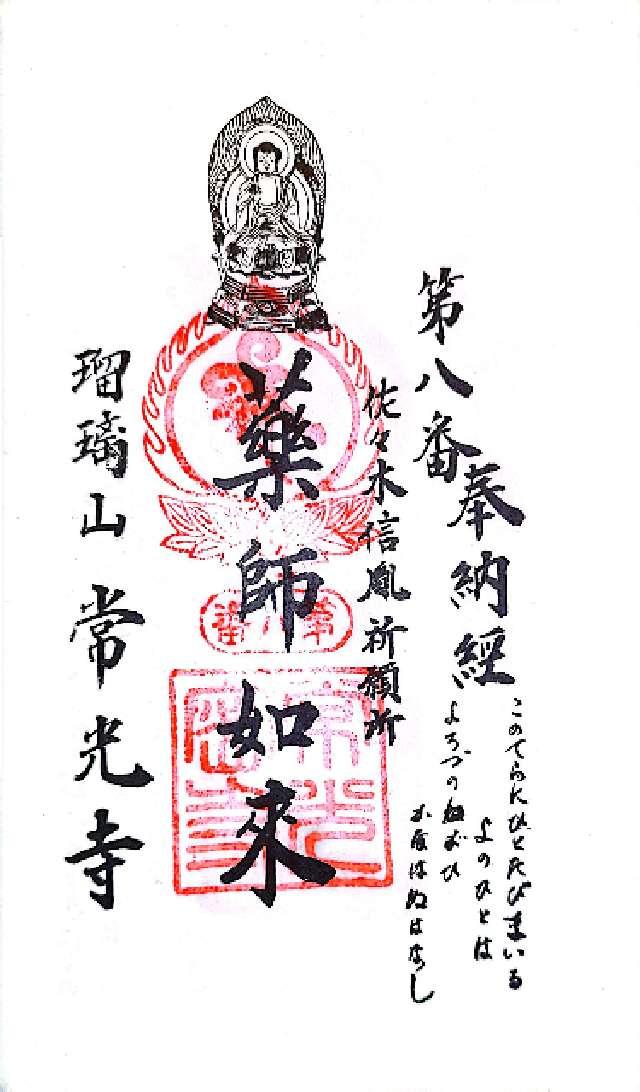 第八番
奉納経
このてらにひとたびまいる
よのひとは
よろづの
はぬはなし
佐々木信胤祈願所
薬師如來
第八番
常光寺
瑠璃山 常光寺